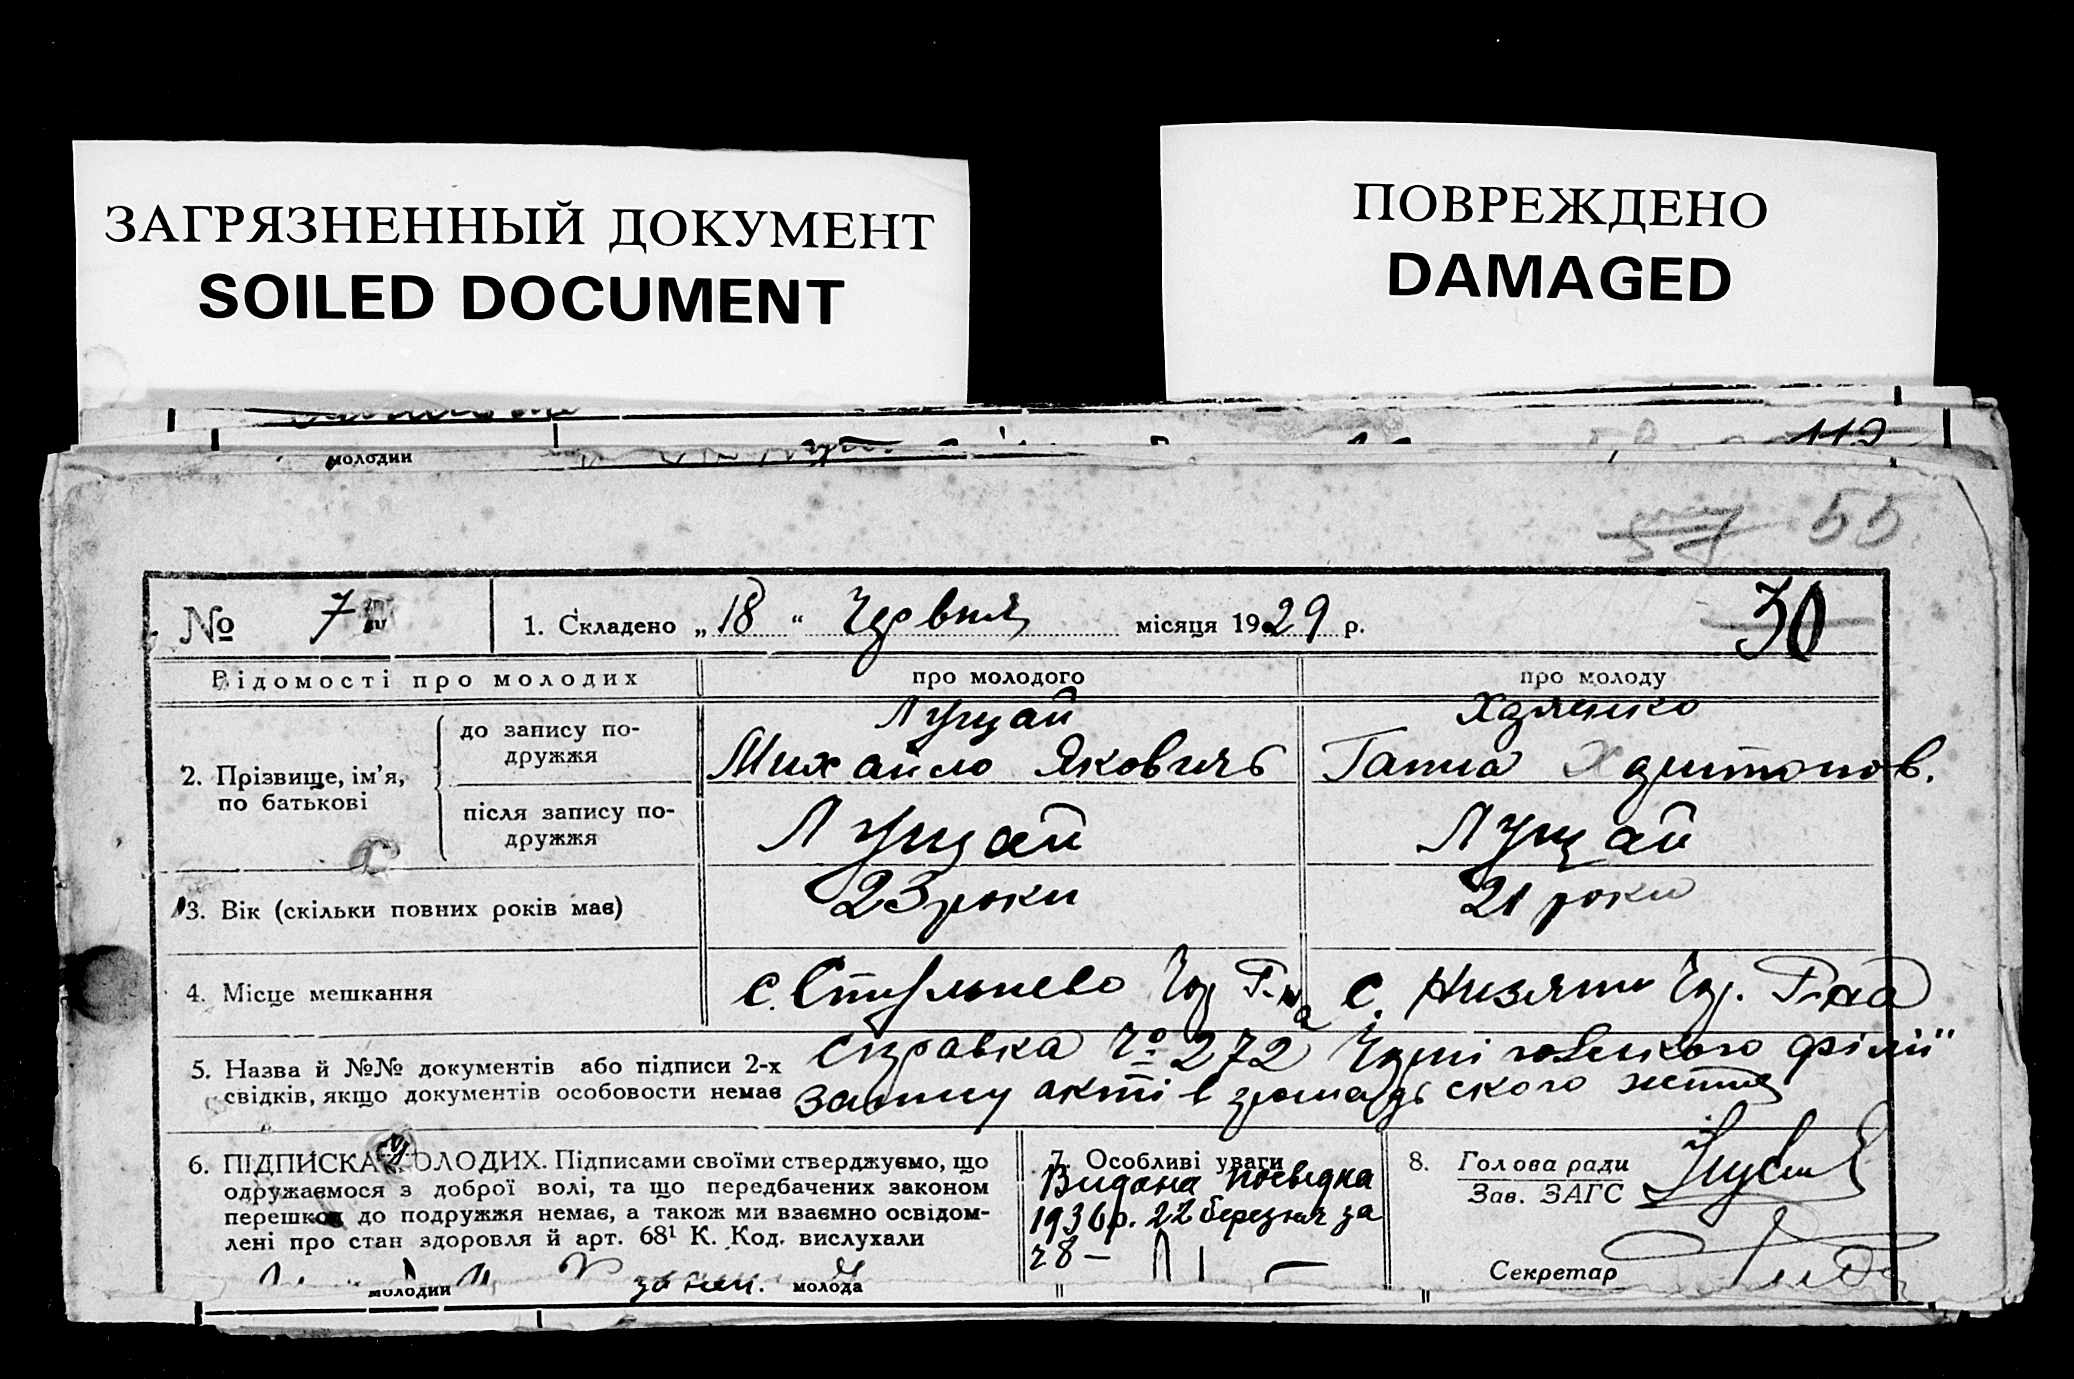 ЗАГРЯЗНЕННЫЙ ДОКУМЕНТ
SOILED DOCUMENT
ПОВРЕЖДЕНО
DAMAGED
119
молодий
55
№ 7
1. Складено „18“ Червня місяця 1929 р.
30
Відомості про молодих
про молодого
про молоду
2. Прізвище, ім’я, по батькові
до запису по-
дружжя
Лущай
Михайло Яковичь
Ганна Харитонов.
після запису по-
дружжя
Лущай
Лущай
3. Вік (скільки повних років має)
23 роки
21 роки
4. Місце мешкання
с. Стульнево Чер. Р-на
с. Низяни Чер. Р-на
5. Назва й №№ документів або підписи 2-х
свідків, якщо документів особовости немає
Справка № 272 філії
запису актів громадьского життя
6. ПІДПИСКА МОЛОДИХ. Підписами своїми стверджуємо, що
одружаємося з доброї волі, та що передбачених законом
перешкод до подружжя немає, а також ми взаємно освідом-
лені про стан здоровля й арт. 68¹ К. Код. вислухали
молодий
молода
7. Особливі уваги
Видана посвідка
1936р. 22 березня за
28 —
8. Голова ради
Зав. ЗАГС
Секретар